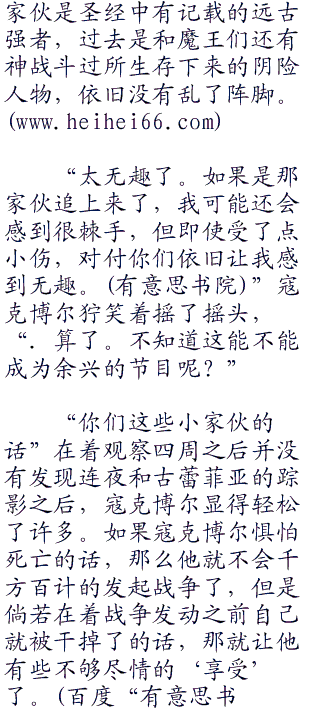 家伙是圣经中有记载的远古
强者，过去是和魔王们还有
神战斗过所生存下来的阴险
人物，依旧没有乱了阵脚。
(www.heihei66.com)
“太无趣了。如果是那
家伙追上来了，我可能还会
感到很棘手，但即使受了点
小伤，对付你们依旧让我感
到无趣。(有意思书院)”寇
克博尔狞笑着摇了摇头，
“．算了。不知道这能不能
成为余兴的节目呢？”
“你们这些小家伙的
话”在着观察四周之后并没
有发现连夜和古蕾菲亚的踪
影之后，寇克博尔显得轻松
了许多。如果寇克博尔惧怕
死亡的话，那么他就不会千
方百计的发起战争了，但是
倘若在着战争发动之前自己
就被干掉了的话，那就让他
有些不够尽情的‘享受’
了。(百度“有意思书